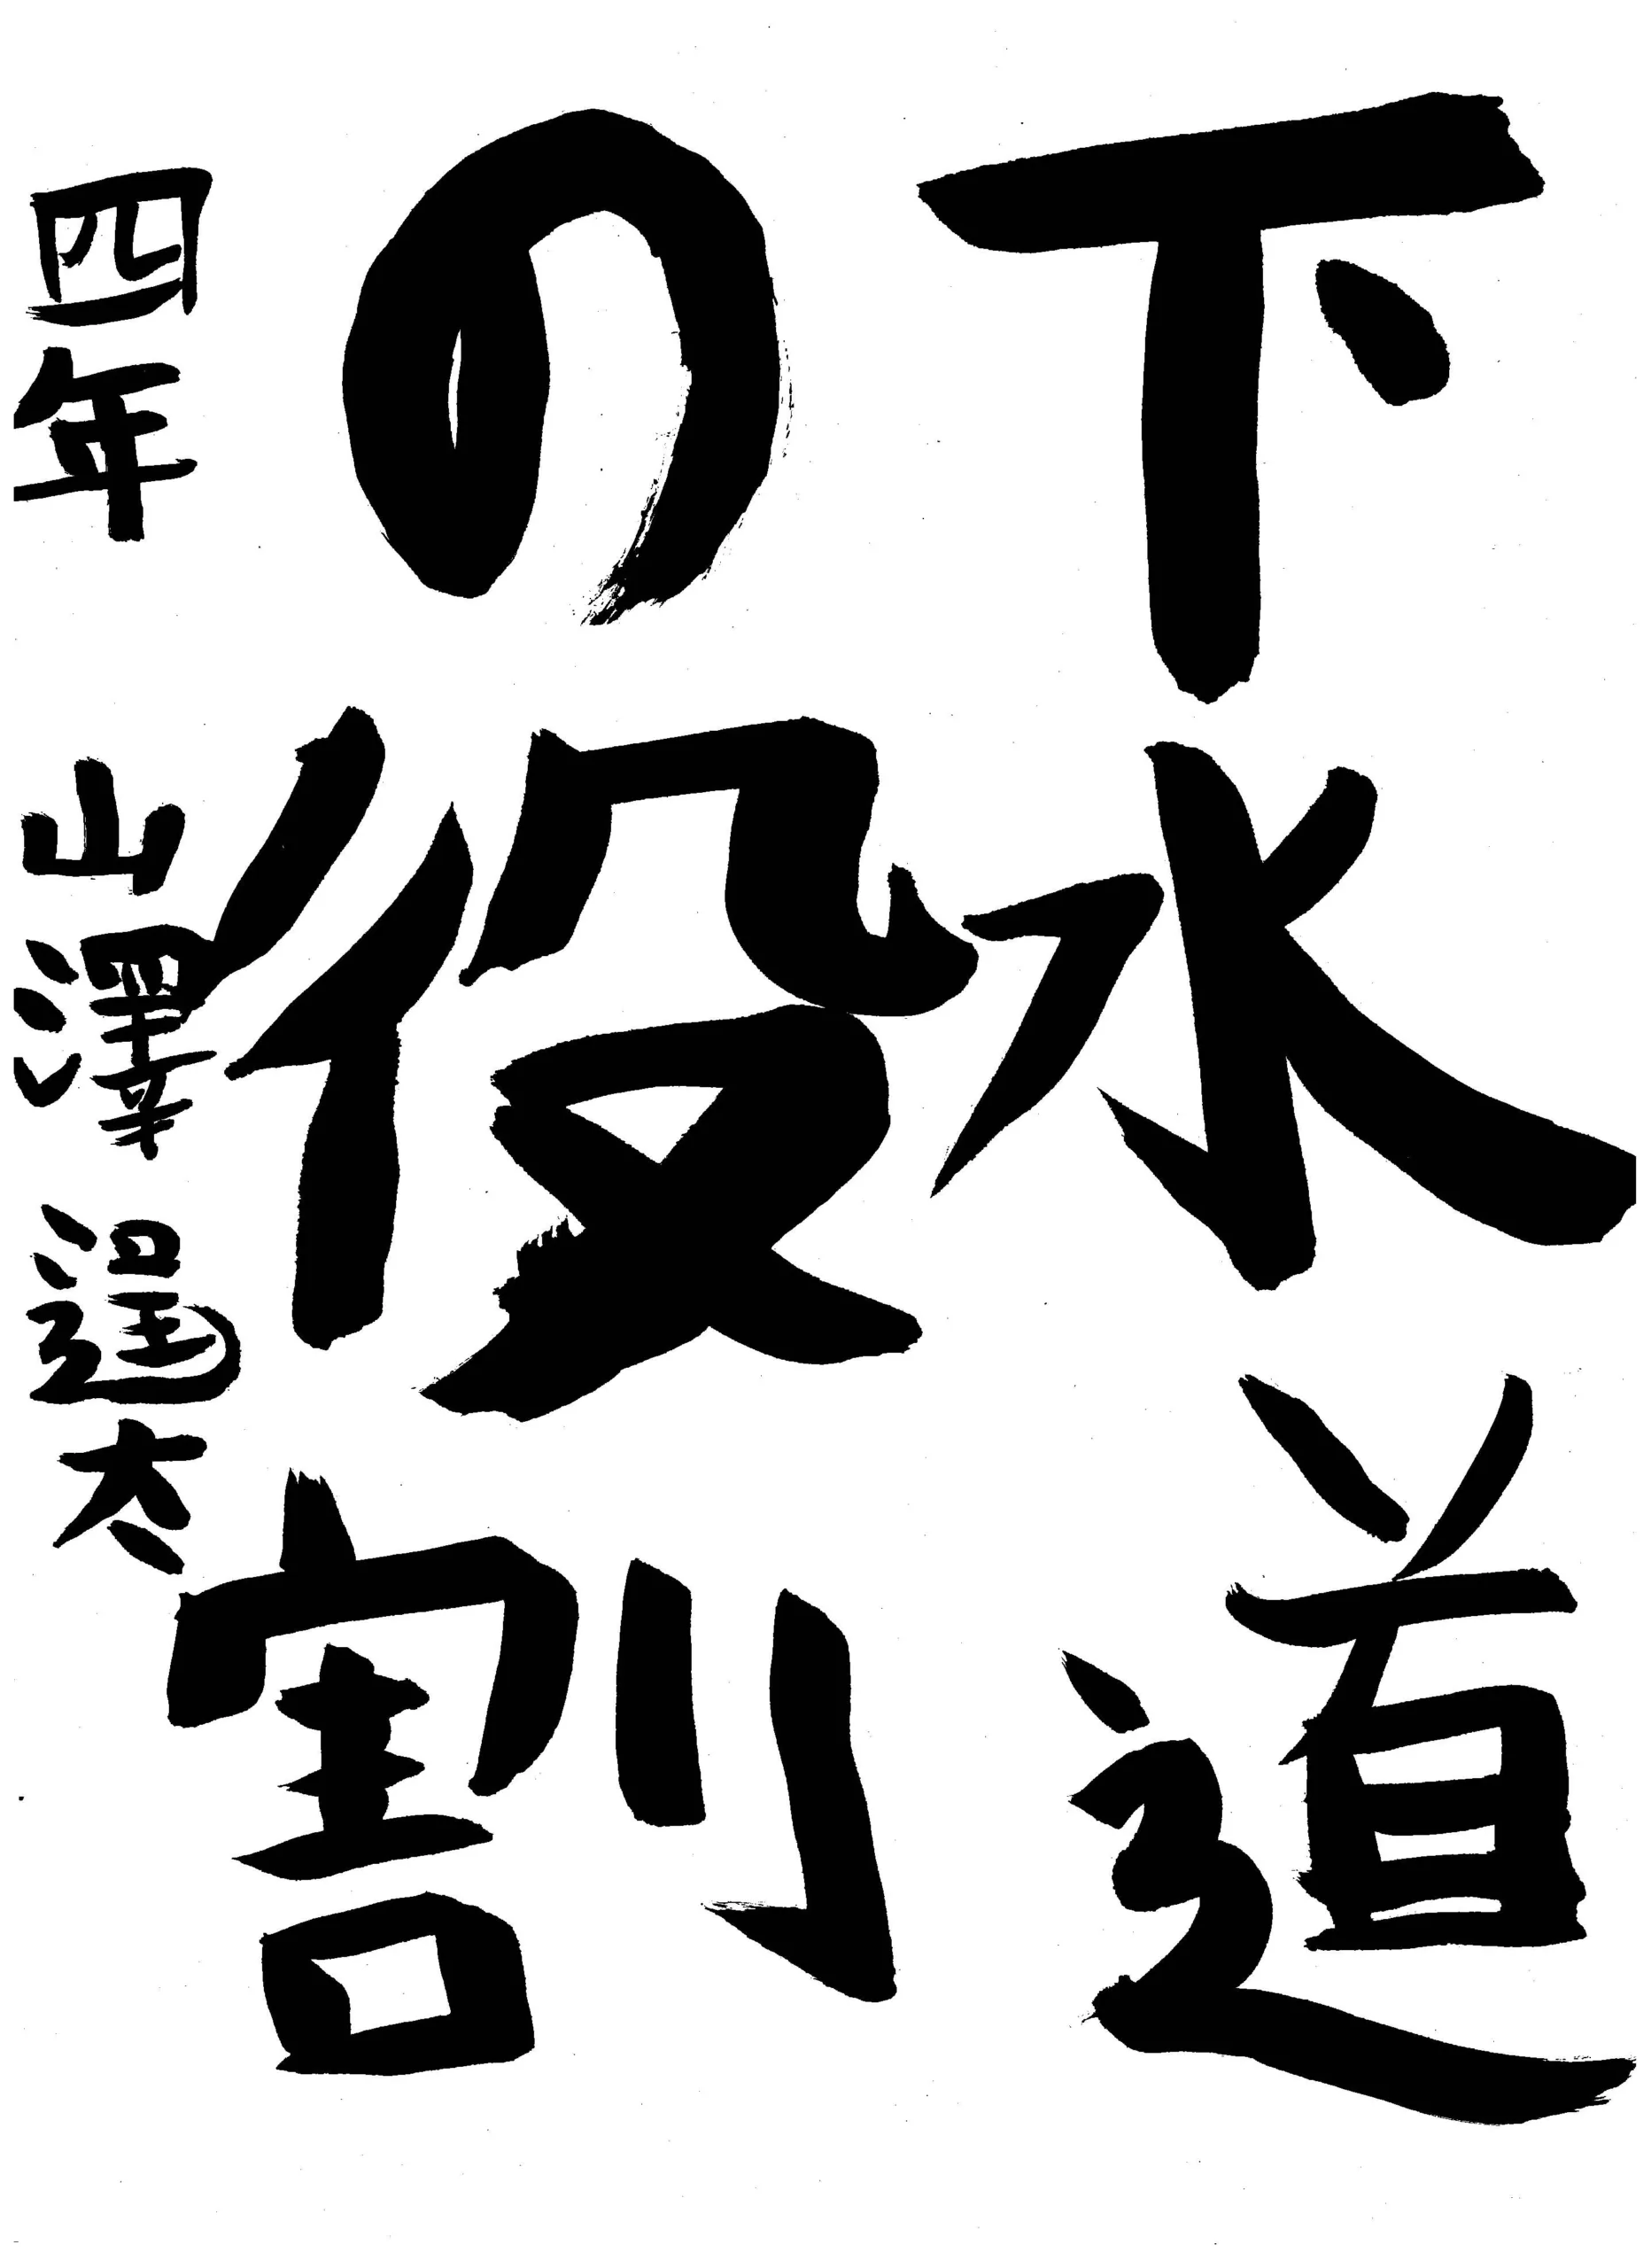 下水道
の役割
四年 山澤 逞太